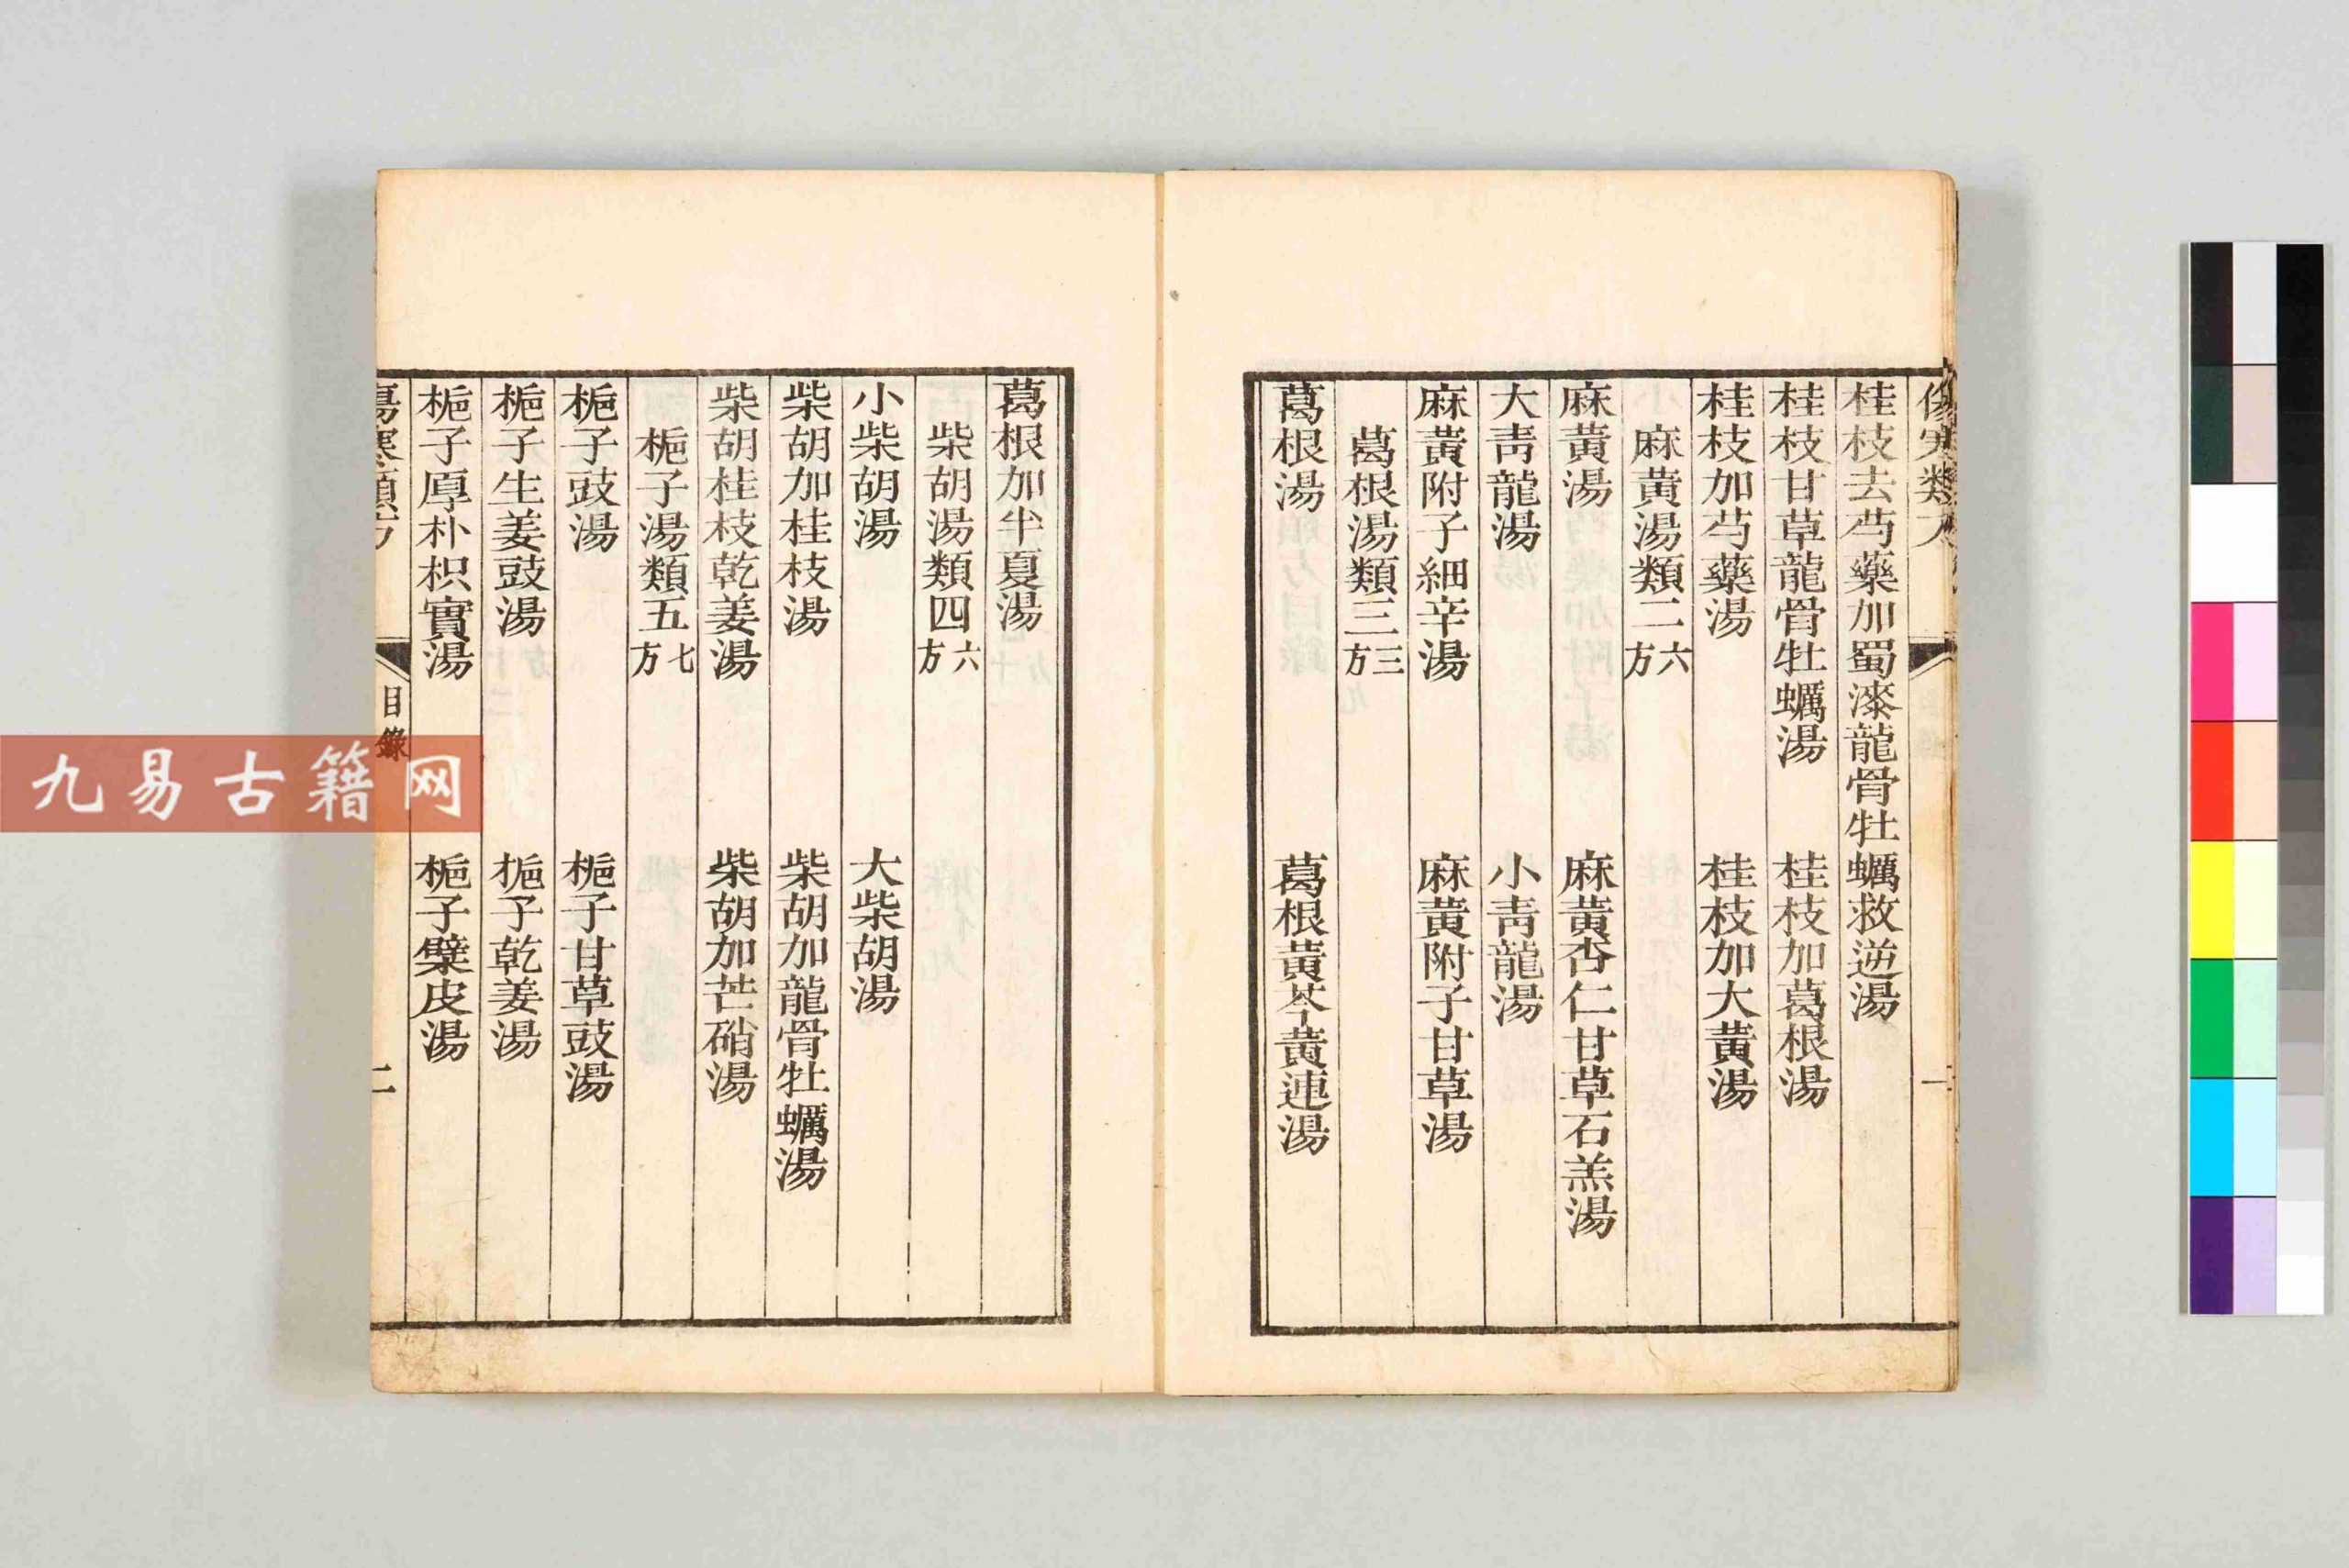 桂枝去芍藥加蜀漆龍骨牡蠣救逆湯
桂枝甘草龍骨牡蠣湯　桂枝加葛根湯
桂枝加芍藥湯　桂枝加大黃湯
麻黃湯類二六方
麻黃湯　麻黃杏仁甘草石羔湯
大靑龍湯　小靑龍湯
麻黃附子細辛湯　麻黃附子甘草湯
葛根湯類三三方
葛根湯　葛根黃芩黃連湯
葛根加半夏湯
柴胡湯類四六方
小柴胡湯　大柴胡湯
柴胡加桂枝湯　柴胡加龍骨牡蠣湯
柴胡桂枝乾姜湯　柴胡加芒硝湯
梔子湯類五七方
梔子豉湯　梔子甘草豉湯
梔子生姜豉湯　梔子乾姜湯
梔子厚朴枳實湯　梔子檗皮湯
傷寒類方　目錄　二
九易古籍网